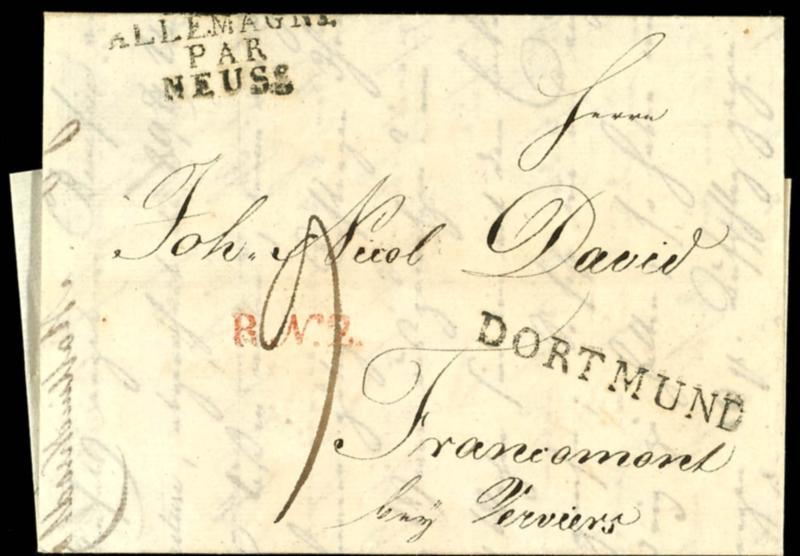 ALLEMAGNE.
PAR
NEUSS
Herrn
Joh. Nicol David
R.N.º2.
DORTMUND
Francomont
bey Verviers